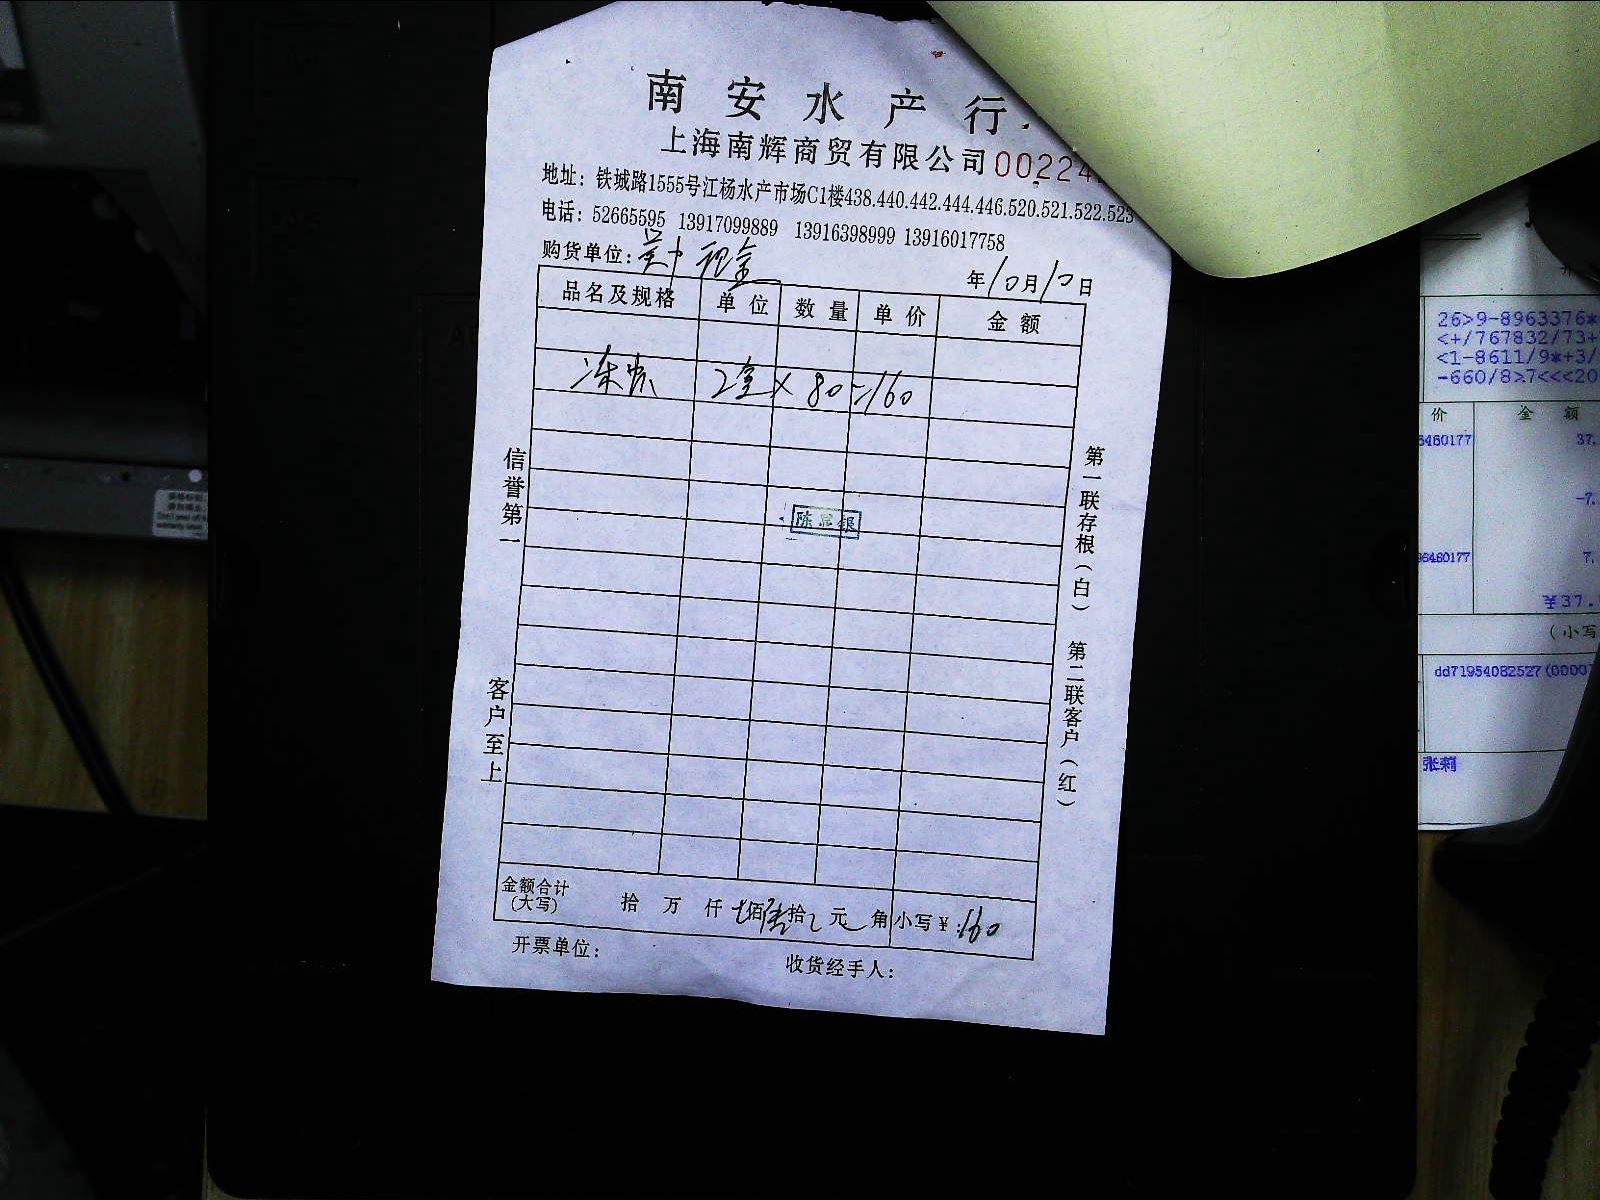 南安水产行
上海南辉商贸有限公司 00224
地址：铁城路1555号江杨水产市场C1楼438.440.442.444.446.520.521.522.523
电话：52665595 13917099889 13916398999 13916017758
购货单位：
年10月10日
品名及规格 单位 数量 单价 金额
2盒×80=160
信誉第一
客户至上
第一联存根（白）
第二联客户（红）
金额合计 拾 万 仟 佰 拾 元 角 小写￥:160
（大写）
开票单位：
收货经手人：
26>9-8963376*
<+/767832/73+
<1-8611/9*+3/
-660/8>7<<<20
价 金 额
37.
-7.
7.
￥37.
（小写
dd71954082527(0000
张莉